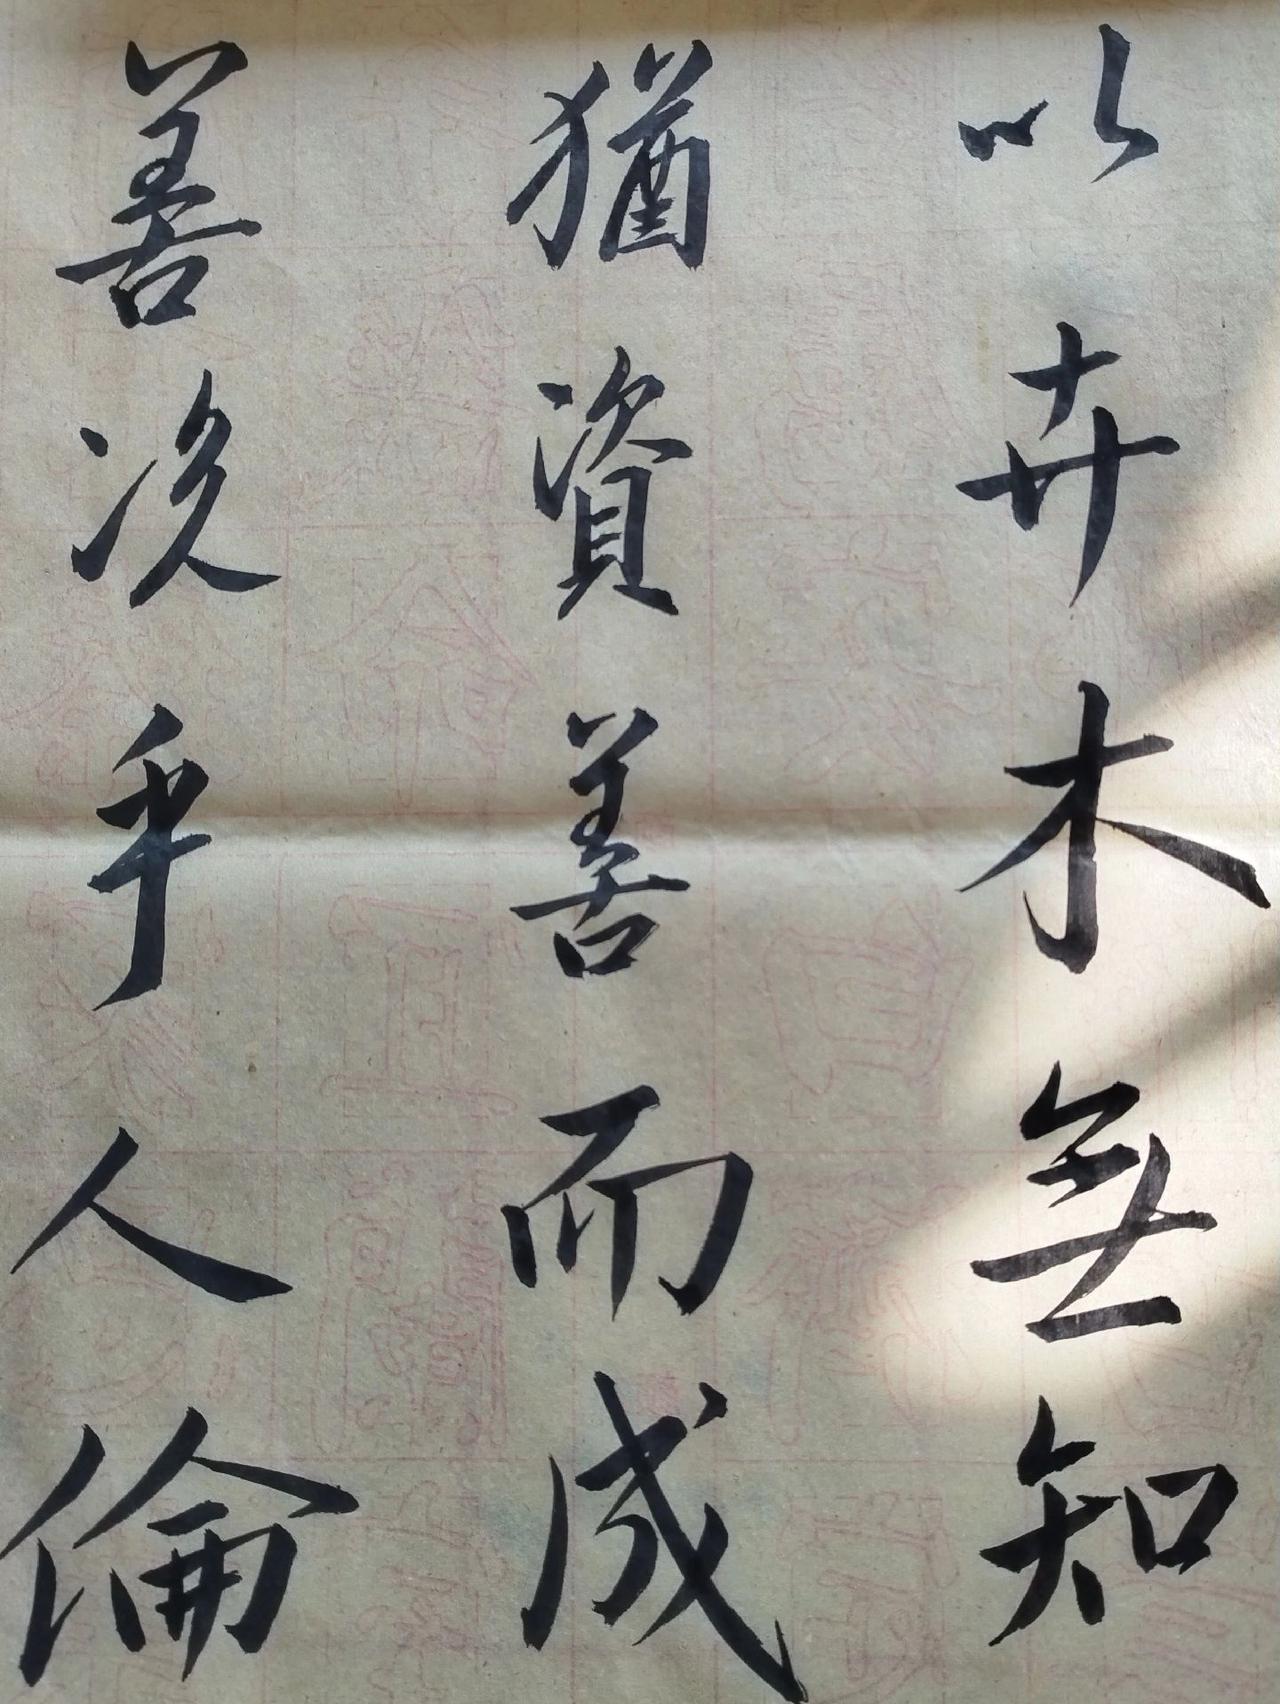 以卉木無知
猶資善而成
善况乎人倫